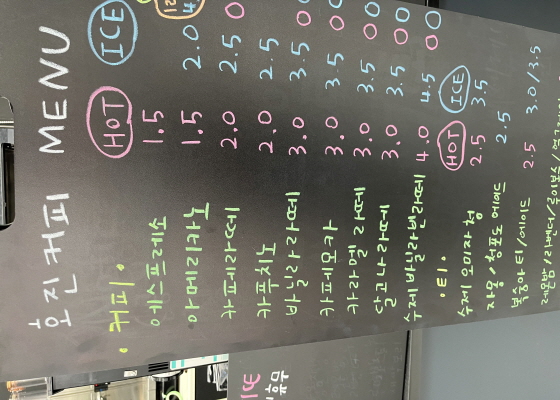 호진커피 MENU
· 커피 · HOT ICE
에스프레소 1.5
아메리카노 1.5 2.0
카페라떼 2.0 2.5
카푸치노 2.0 2.5
바닐라라떼 3.0 3.5
카페모카 3.0 3.5
카라멜라떼 3.0 3.5
달고나라떼 3.0 3.5
수제 바닐라빈라떼 4.0 4.5
· 티 · HOT ICE
수제 오미자청 2.5 3.5
자몽/청포도 에이드 2.5
복숭아 티/에이드 2.5 3.0/3.5